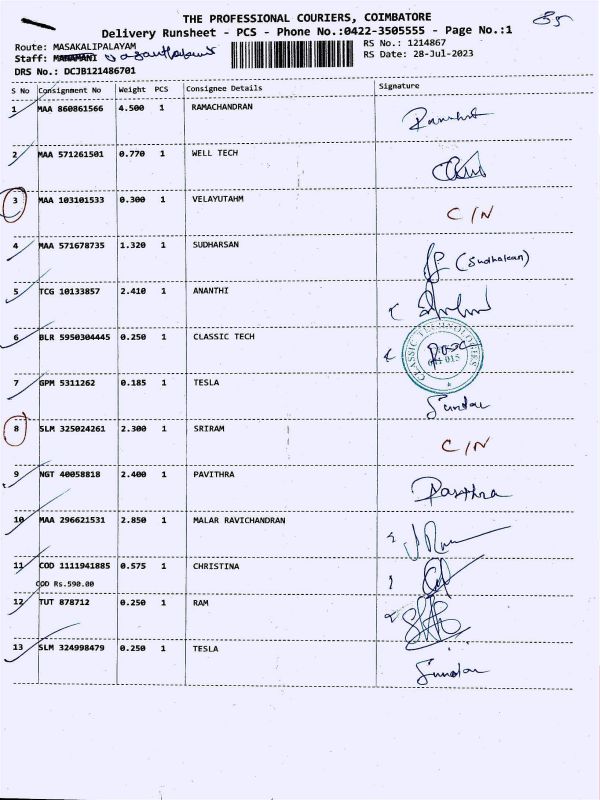 THE PROFESSIONAL COURIERS, COIMBATORE
85
Delivery Runsheet - PCS - Phone No.:0422-3505555 - Page No.:1
Route: MASAKALIPALAYAM
RS No.: 1214867
Staff:
RS Date: 28-Jul-2023
DRS No.: DCJB121486701
S No Consignment No Weight PCS Consignee Details Signature
1 MAA 860861566 4.500 1 RAMACHANDRAN
2 MAA 571261501 0.770 1 WELL TECH
3 MAA 103101533 0.300 1 VELAYUTAHM C/N
4 MAA 571678735 1.320 1 SUDHARSAN
5 TCG 10133857 2.410 1 ANANTHI
6 BLR 5950304445 0.250 1 CLASSIC TECH CLASSIC TECHNOLOGIES
7 GPM 5311262 0.185 1 TESLA Sundar
8 SLM 325024261 2.300 1 SRIRAM C/N
9 NGT 40058818 2.400 1 PAVITHRA Pavithra
10 MAA 296621531 2.850 1 MALAR RAVICHANDRAN
11 COD 1111941885 0.575 1 CHRISTINA
COD Rs.590.00
12 TUT 878712 0.250 1 RAM
13 SLM 324998479 0.250 1 TESLA Sundar